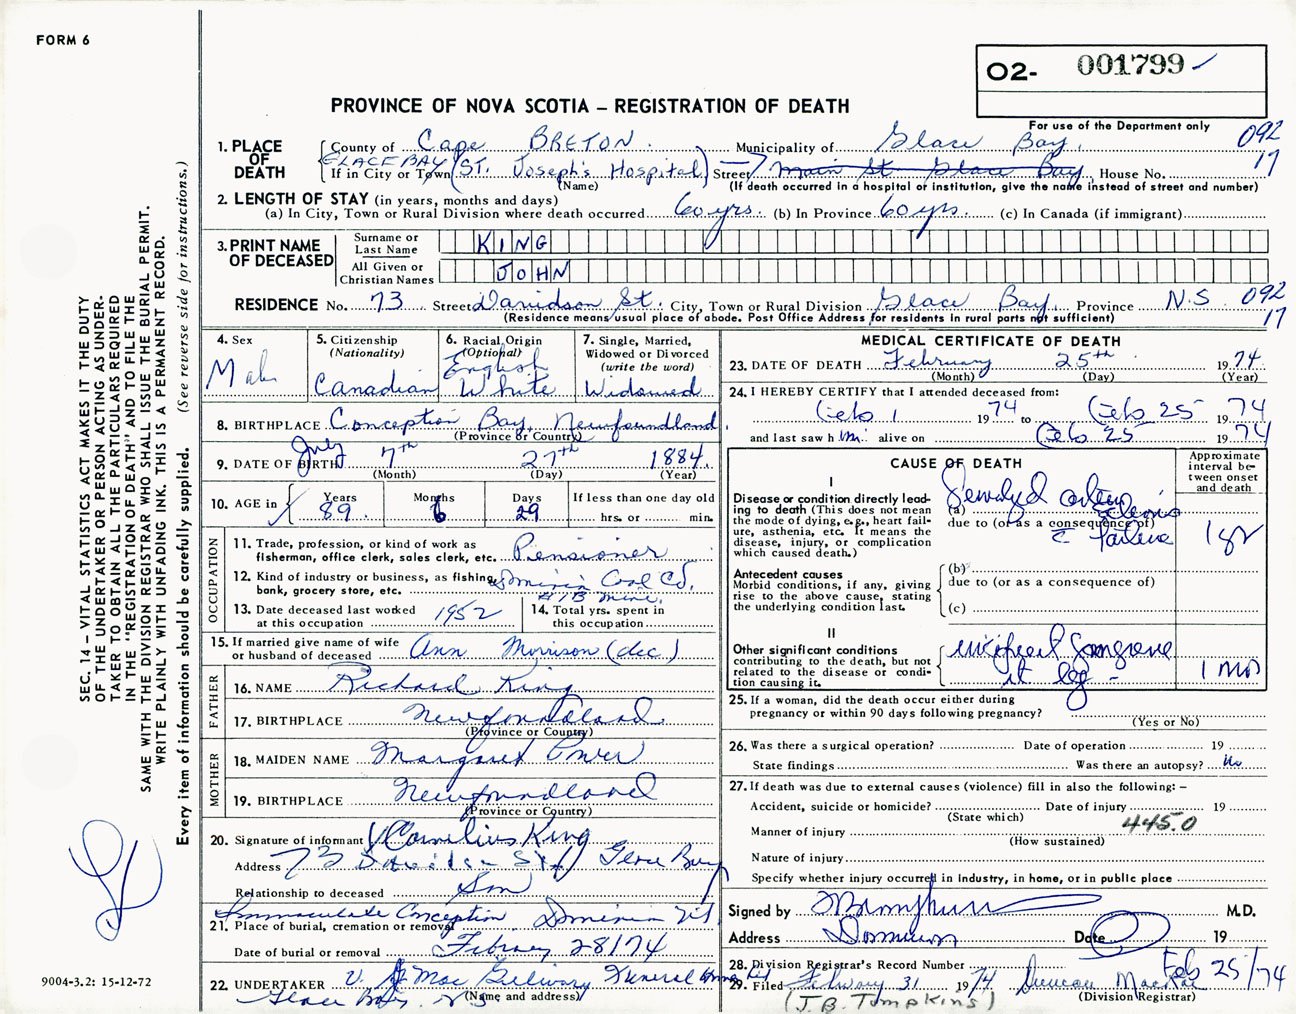 FORM 6
O2- 001799
PROVINCE OF NOVA SCOTIA – REGISTRATION OF DEATH
For use of the Department only
092
17
1. PLACE OF DEATH
County of Cape BRETON Municipality of Glace Bay
GLACE BAY
If in City or Town (ST. Joseph's Hospital) Street Main St Glace Bay, House No.
(Name) (If death occurred in a hospital or institution, give the name instead of street and number)
2. LENGTH OF STAY (in years, months and days)
(a) In City, Town or Rural Division where death occurred 60 yrs. (b) In Province 60 yrs. (c) In Canada (if immigrant)
3. PRINT NAME OF DECEASED
Surname or Last Name KING
All Given or Christian Names JOHN
RESIDENCE No. 73 Street Davidson St. City, Town or Rural Division Glace Bay, Province N.S. 092
17
(Residence means usual place of abode. Post Office Address for residents in rural parts not sufficient)
4. Sex
Male
5. Citizenship
(Nationality)
Canadian
6. Racial Origin
(Optional)
English
White
7. Single, Married, Widowed or Divorced
(write the word)
Widowed
8. BIRTHPLACE Conception Bay, Newfoundland
(Province or Country)
July
9. DATE OF BIRTH 7th 27th 1884.
(Month) (Day) (Year)
10. AGE in
Years Months Days If less than one day old
89 6 29 hrs. or min.
OCCUPATION
11. Trade, profession, or kind of work as fisherman, office clerk, sales clerk, etc. Pensioner
12. Kind of industry or business, as fishing, bank, grocery store, etc. Dominion Coal Co.
#1B Mine.
13. Date deceased last worked at this occupation 1952
14. Total yrs. spent in this occupation
15. If married give name of wife or husband of deceased Ann Morrison (dec)
FATHER
16. NAME Richard King
17. BIRTHPLACE Newfoundland
(Province or Country)
MOTHER
18. MAIDEN NAME Margaret Power
19. BIRTHPLACE Newfoundland
(Province or Country)
20. Signature of informant Cornelius King
Address 73 Davidson St Glace Bay
Relationship to deceased Son
Immaculate Conception Dominion
21. Place of burial, cremation or removal
Date of burial or removal February 28/74
22. UNDERTAKER V. J. Mac Gillivary Funeral Home Ltd
Glace Bay, N.S.
(Name and address)
MEDICAL CERTIFICATE OF DEATH
23. DATE OF DEATH February 25th 1974.
(Month) (Day) (Year)
24. I HEREBY CERTIFY that I attended deceased from:
Feb 1 1974 to Feb 25 1974
and last saw him alive on Feb 25 1974
CAUSE OF DEATH
Approximate interval between onset and death
I
Disease or condition directly leading to death (This does not mean the mode of dying, e.g., heart failure, asthenia, etc. It means the disease, injury, or complication which caused death.)
(a)
due to (or as a consequence of)
Antecedent causes
Morbid conditions, if any, giving rise to the above cause, stating the underlying condition last.
(b)
due to (or as a consequence of)
(c)
II
Other significant conditions
contributing to the death, but not related to the disease or condition causing it.
gangrene
leg -
1 mo
25. If a woman, did the death occur either during pregnancy or within 90 days following pregnancy?
(Yes or No)
26. Was there a surgical operation? Date of operation 19
State findings Was there an autopsy? No
27. If death was due to external causes (violence) fill in also the following: –
Accident, suicide or homicide? Date of injury 19
(State which)
445.0
Manner of injury
(How sustained)
Nature of injury
Specify whether injury occurred in industry, in home, or in public place
Signed by M.D.
Address Dominion Date 19
Feb 25/74
28. Division Registrar's Record Number
29. Filed February 31 1974 Duncan MacRae
(Division Registrar)
(J.B. TOMPKINS)
SEC. 14 – VITAL STATISTICS ACT MAKES IT THE DUTY
OF THE UNDERTAKER OR PERSON ACTING AS UNDER-
TAKER TO OBTAIN ALL THE PARTICULARS REQUIRED
IN THE "REGISTRATION OF DEATH" AND TO FILE THE
SAME WITH THE DIVISION REGISTRAR WHO SHALL ISSUE THE BURIAL PERMIT.
WRITE PLAINLY WITH UNFADING INK. THIS IS A PERMANENT RECORD.
Every item of information should be carefully supplied. (See reverse side for instructions.)
9004-3.2: 15-12-72